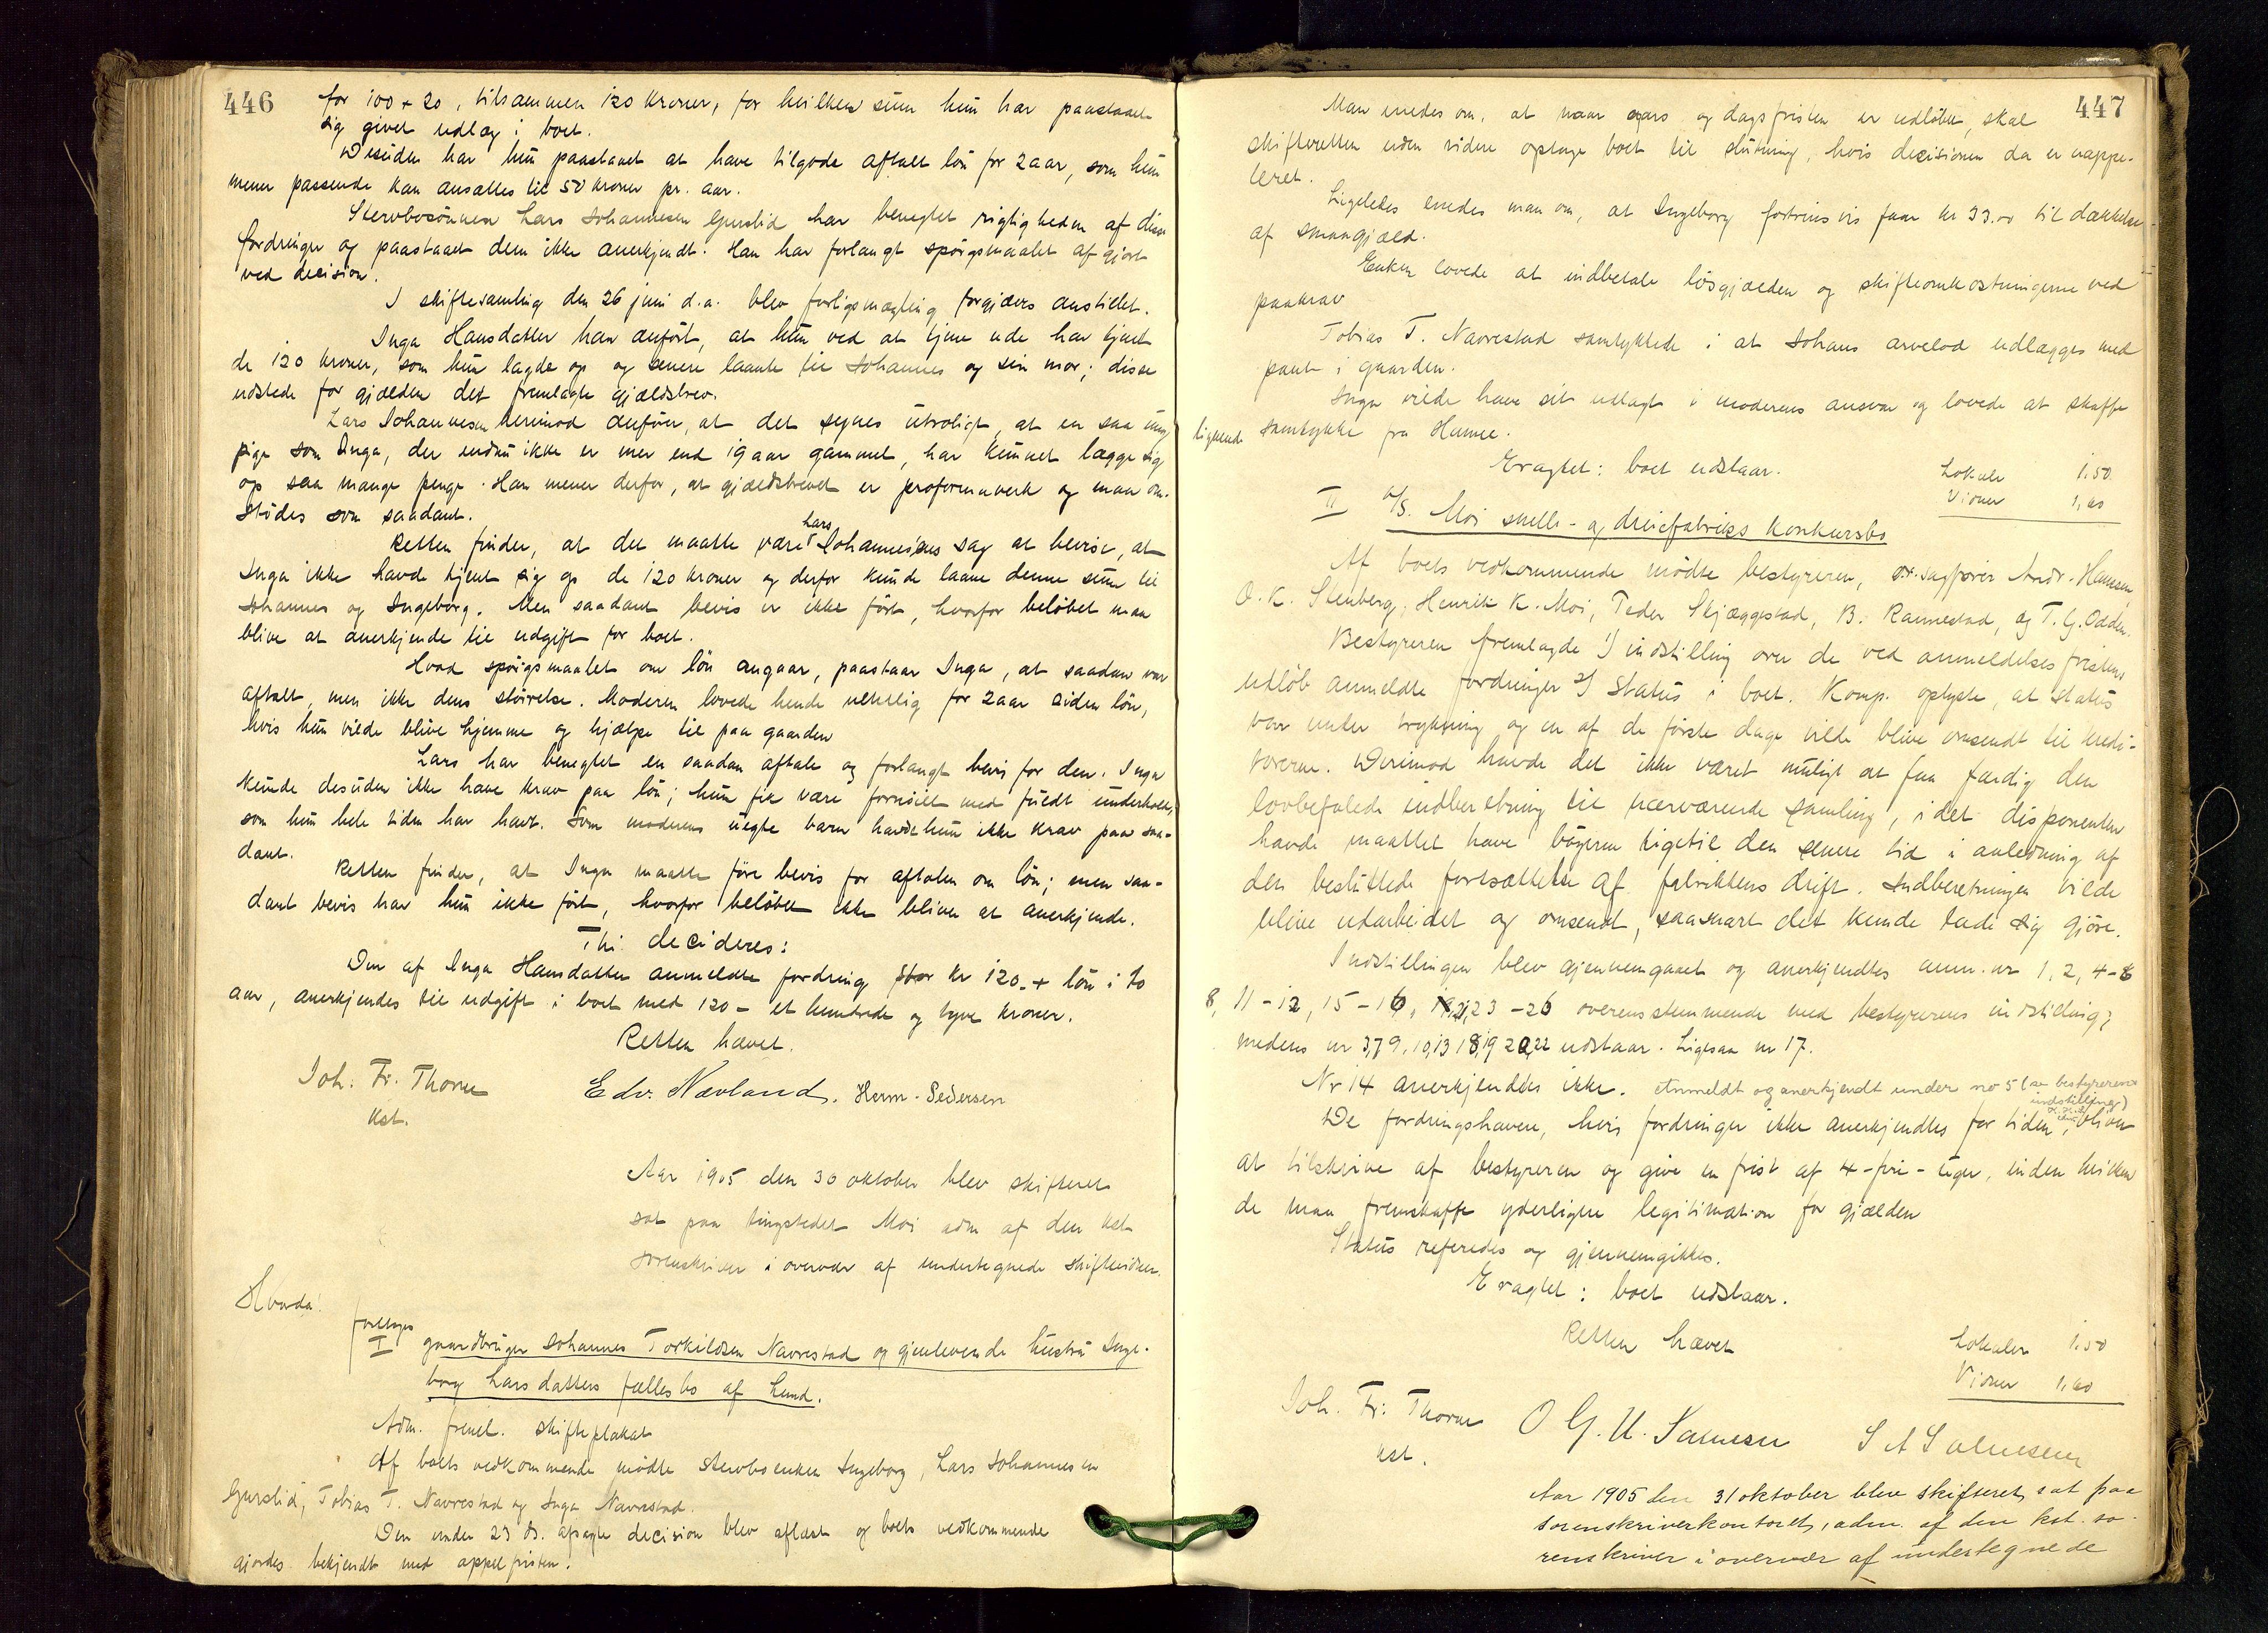 446
for 100 + 20, tilsammen 120 kroner, for hvilken sum hun har paastaaet
sig givet udlæg i boet.
Desuden har hun paastaaet at have tilgode aftalt løn for 2 aar, som hun
mener passende kan ansættes til 50 kroner pr. aar.
Stervbosønnen Lars Johannesen Gurslid har benegtet rigtigheden af disse
fordringer og paastaaet dem ikke anerkjendt. Han har forlangt spørgsmaalet afgjort
ved decision.
I skiftesamling den 26 juni d.a. blev forligsmægling forgjæves anstillet.
Inga Hansdatter har anført, at hun ved at tjene ude har tjent
de 120 kroner, som hun lagde op og senere laante til Johannes og sin mor; disse
udstede for gjælden det fremlagte gjældsbrev.
Lars Johannesen derimod anfører, at det synes utroligt, at en saa ung
pige som Inga, der endnu ikke er mer end 19 aar gammel, har kunnet lægge sig
op saa mange penge. Han mener derfor, at gjældsbrevet er proformaverk og maa om-
stødes som saadant.
Retten finder, at det maatte være Lars Johannesens sag at bevise, at
Inga ikke havde tjent sig op de 120 kroner og derfor kunde laane denne sum til
Johannes og Ingeborg. Men saadant bevis er ikke ført, hvorfor beløbet maa
blive at anerkjende til udgift for boet.
Hvad spørgsmaalet om løn angaar, paastaar Inga, at saadan var
aftalt, men ikke dens størrelse. Moderen lovede hende nemlig for 2 aar siden løn,
hvis hun vilde blive hjemme og hjælpe til paa gaarden
Lars har benegtet en saadan aftale og forlangt bevis for den. Inga
kunde desuden ikke have krav paa løn; hun fik være fornøiet med fuldt underhold,
som hun hele tiden har havt. Som moderens uegte barn havde hun ikke krav paa saa-
dant.
Retten finder, at Inga maatte føre bevis for aftalen om løn; men saa-
dant bevis har hun ikke ført, hvorfor beløbet ikke bliver at anerkjende.
Thi decideres:
Den af Inga Hansdatter anmeldte fordring stor kr 120.- + løn i to
aar, anerkjendes til udgift i boet med 120 - et hundrede og tyve kroner.
Retten hævet.
Joh. Fr. Thorne
kst.
Edv. Nævland. Herm. Pedersen
Aar 1905 den 30 oktober blev skifteret
sat paa tingstedet Moi adm af den kst
sorenskriver i overvær af undertegnede skiftevidner.
Hvorda:
foretoges
I gaardbruger Johannes Torkildsen Navrestad og gjenlevende hustru Inge-
borg Larsdatters fællesbo af Lund.
Adm. freml. skifteplakat
Af boets vedkommende mødte stervboenken Ingeborg, Lars Johannesen
Gurslid, Tobias T. Navrestad og Inga Navrestad.
Den under 23 ds. afsagte decision blev oplæst og boets vedkommende
gjordes bekjendt med appelfristen.
447
Man enedes om, at naar aars og dagsfristen er udløbet, skal
skifteretten uden videre optage boet til slutning, hvis decisionen da er uappel-
leret.
Ligeledes enedes man om, at Ingeborg fortrinsvis faar kr 33.00 til dækkelse
af smaagjæld.
Enken lovede at indbetale løsgjælden og skifteomkostningerne ved
paakrav
Tobias T. Navrestad samtykkede i at Johans arvelod udlægges med
pant i gaarden.
Inga vilde have sit udlagt i moderens ansvar og lovede at skaffe
lignende samtykke fra Hanne.
Eragtet: boet udstaar.
Lokale 1.50
Vidner 1,60
II A/S. Moi snelle- og dreiefabriks konkursbo
Af boets vedkommende mødte bestyreren, o.r.sagfører Andr. Hansen,
O. K. Stenberg, Henrik K. Moi, Peder Skjæggestad, B. Rannestad, og T. G. Odden.
Bestyreren fremlagde 1) indstilling over de ved anmeldelsesfristens
udløb anmeldte fordringer 2) Status i boet. Komp. oplyste, at status
var under trykning og en af de første dage vilde blive omsendt til kredi-
torerne. Derimod havde det ikke været muligt at faa færdig den
lovbefalede indberetning til nærværende samling, idet disponenten
havde maattet have bøgerne ligetil den senere tid i anledning af
den besluttede fortsættelse af fabrikkens drift. Indberetningen vilde
blive udarbeidet og omsendt, saasnart det kunde lade sig gjøre.
Indstillingen blev gjennemgaaet og anerkjendtes anm. nr 1, 2, 4-6
8, 11-12, 15-16, 21, 23-26 overensstemmende med bestyrerens indstilling;
medens nr 3,7 9, 10,13 18,19 20,22 udstaar. Ligesaa nr 17.
Nr 14 anerkjendtes ikke. Anmeldt og anerkjendt under no 5 (se bestyrerens
indstilling)
De fordringshavere, hvis fordringer ikke anerkjendtes for tiden, bliver
at tilskrive af bestyreren og give en frist af 4-fire-uger, inden hvilken
de maa fremskaffe yderligere legitimation for gjælden
Status referedes og gjennemgikkes.
Eragtet: boet udstaar.
Retten hævet
Lokaler 1.50
Vidner 1,60
Joh. Fr. Thorne
kst.
O G. U. Salmesen S A Salmesen
Aar 1905 den 31 oktober blev skifteret sat paa
sorenskriverkontoret, adm. af den kst. so-
renskriver i overvær af undertegnede